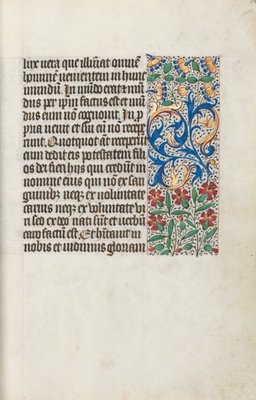 lux vera que illuīat omnē
hominē venientem in hunc
mundū. In mūdo erat et mū
dus per ip̄m factus est et mū
dus eum nōn cognovit. In p̄
pria venit et sui eū nō recepe
runt. Quotquot āt receperūt
eum dedit eis potestatem fili
os dei fieri hijs qui credūt in
nomine eius qui nō ex san
guinibz neqz ex voluntate
carnis neqz ex voluntate vi
ri sed ex deo nati sunt et verbū
caro factū est. Et habitavit in
nobis et vidimus gloriam